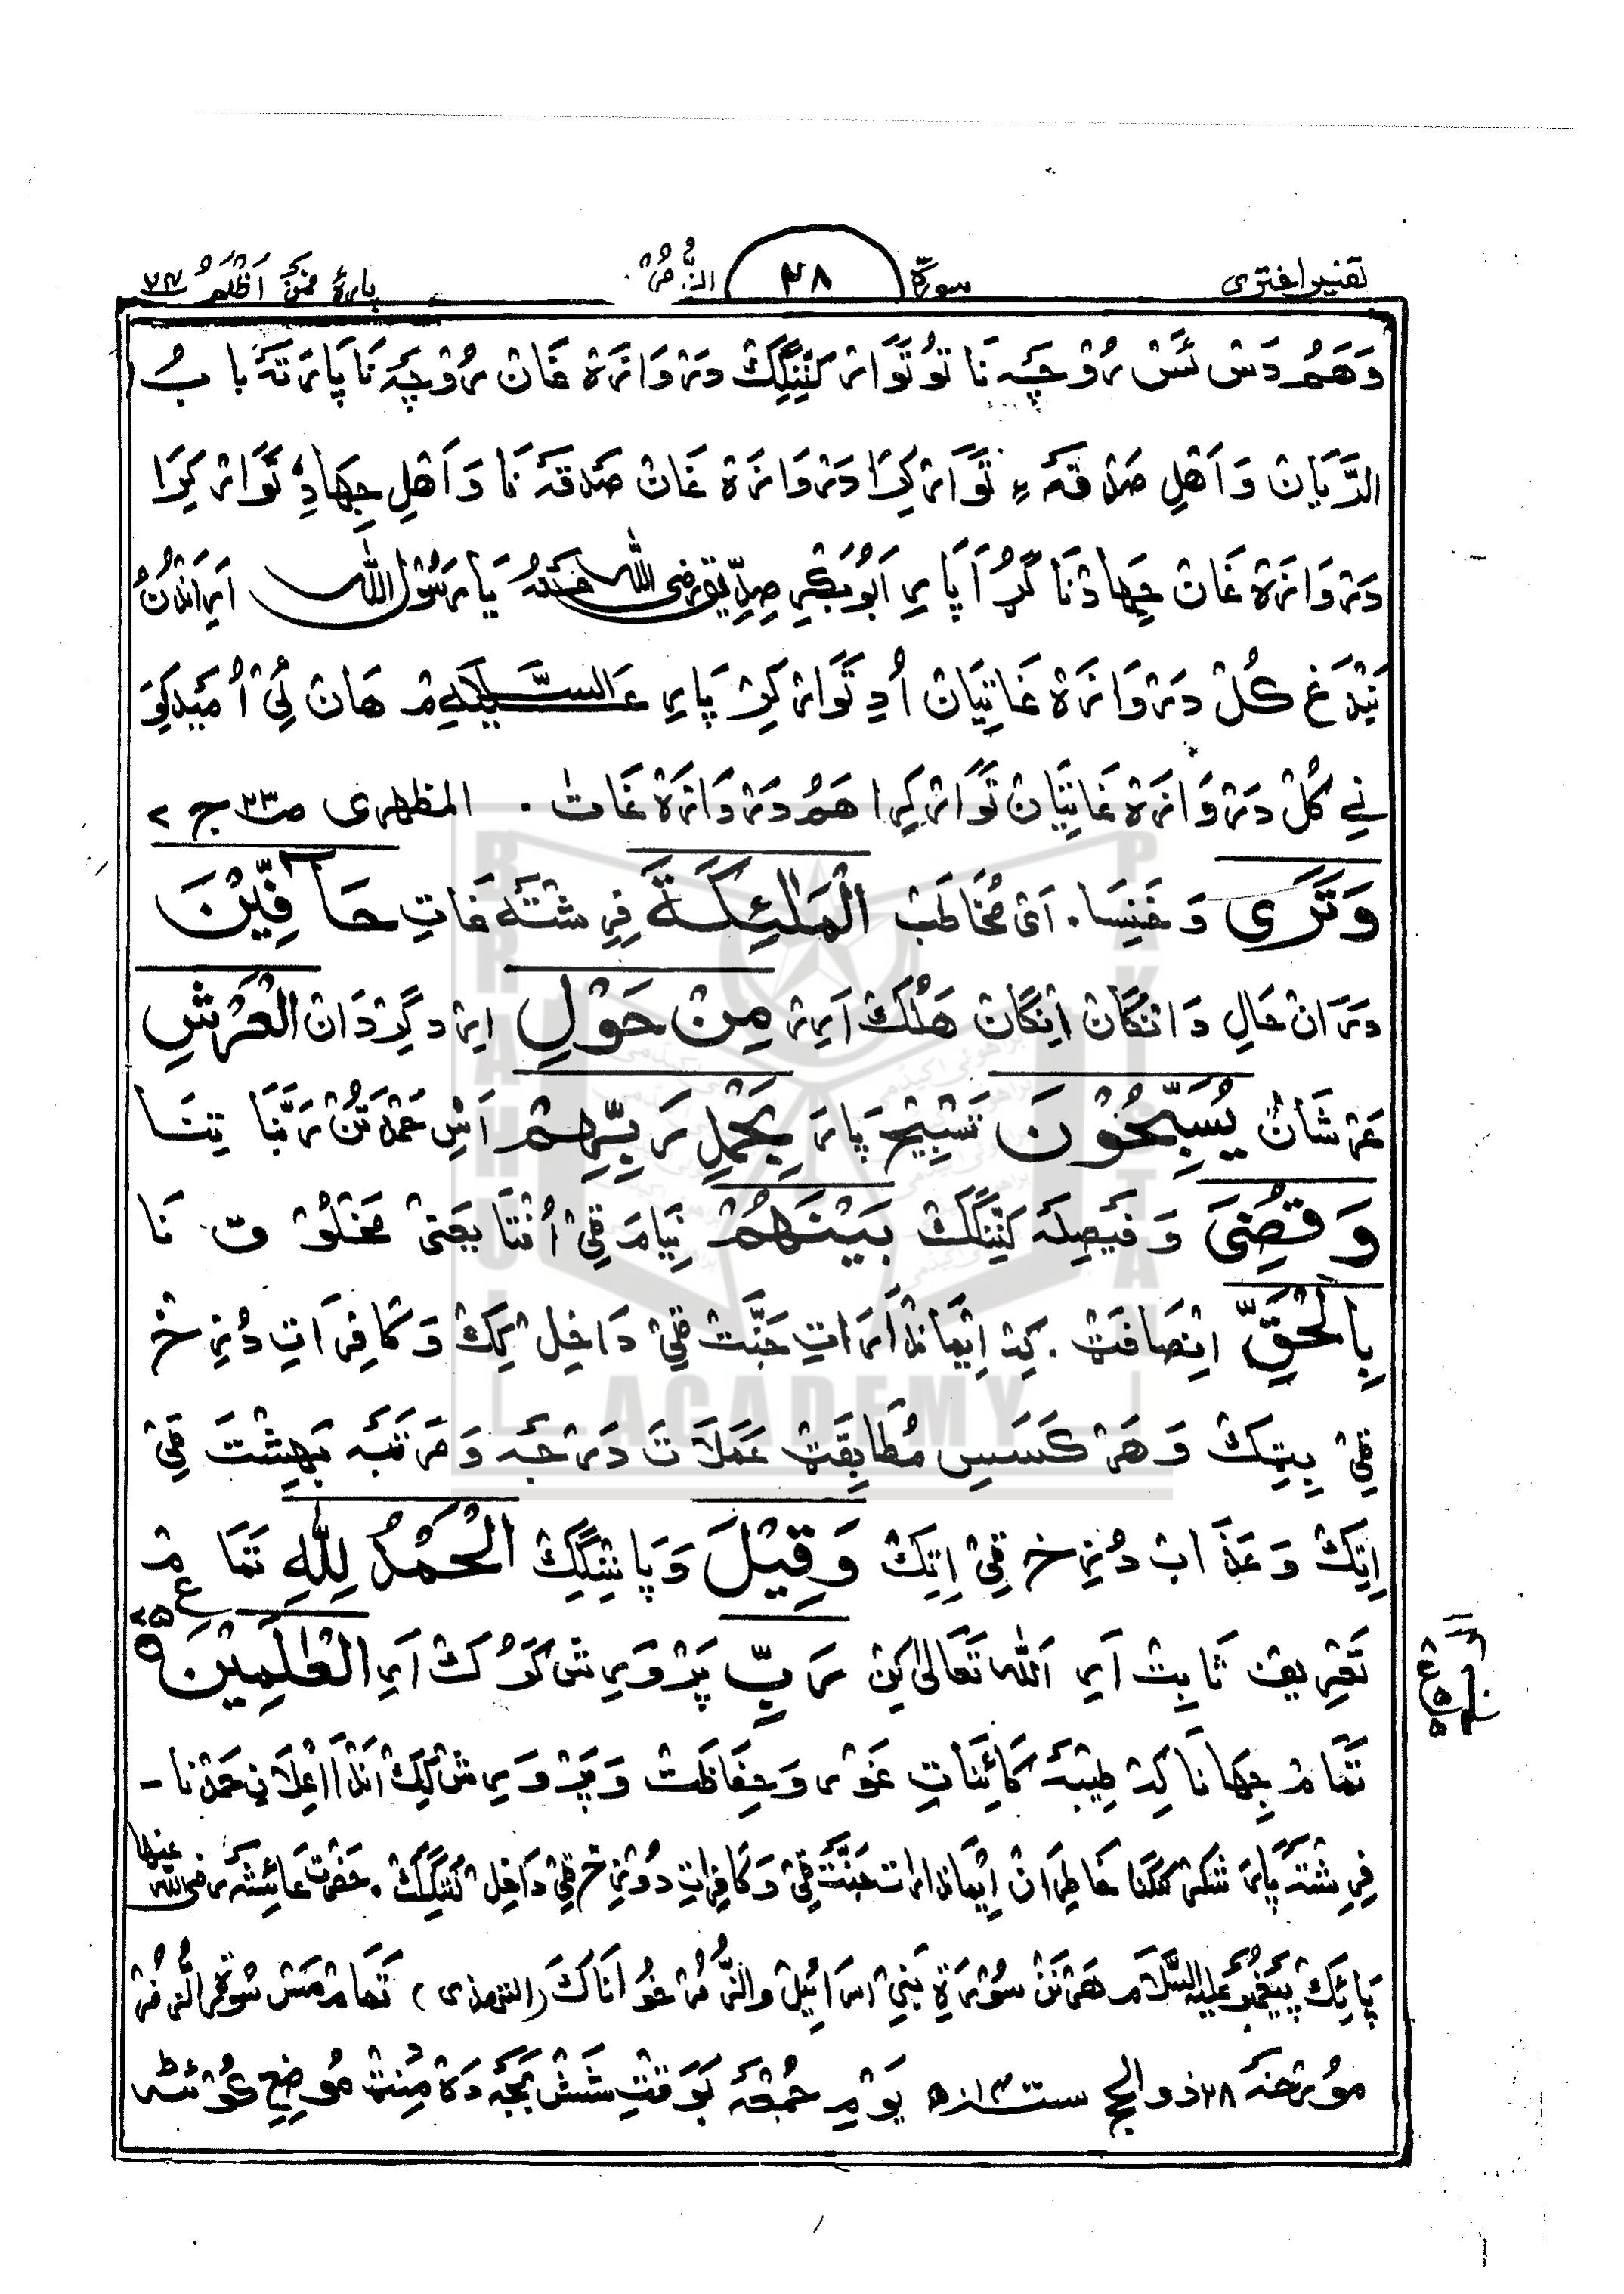 تفسیر اختری سورة ٣٨ الزُّمَرْ پارۀ فَمَنْ اَظْلَمُ ٢٤
وَهَمُ دَنْ نَسْ رُوْچَہ نَا تُوْ تَوَارْ کَنِّنْگِکْ دَرْوَازَہ غَانْ رُوْچَہ نَا پَارَتَہ بَابُ
الرَّیَّانْ وَ اَهْلِ صَدْقَہ ءِ تَوَارْ کِرَا دَرْوَازَہ غَانْ صَدْقَہ نَا وَ اَهْلِ جِهَادِ تَوَارْ کِرَا
دَرْوَازَہ غَانْ جِهَادْنَا گُڑَا پَارِ اَبُوْبَکْرِ صِدِّیْق رضی اللہ عَنْہُ یَا رَسُوْلَ اللہ اَیَا اَنْدُنْ
بَنْدَغ کُلْ دَرْوَازَہ غَاتِیَانْ اُدِ تَوَارْ کِرْ پَارِ عَلَیْهِ السَّلَامْ هَانْ نِیْ اُمِّیْد کِوَ
نِے کُلْ دَرْوَازَہ غَاتِیَانْ تَوَارْ کِرَا هَمُ دَرْوَازَہ غَاتْ ۔ المظهری ص٢٣٣ ج ٨
وَتَرَى وَ خَنِسَا ۔ اَیْ مُخَاطَبْ الْمَلٰئِكَةَ فِرِشْتَہ غَاتِ حَآفِّيْنَ
دَرَ اَنْ حَالِ دَانْگَانْ اِنْگَانْ هَلْکُكْ اَرِرْ مِنْ حَوْلِ اِرْدِ گِرْدَانْ الْعَرْشِ
عَرْشَانْ يُسَبِّحُوْنَ تَسْبِیْح پَارَہ بِحَمْدِ رَبِّهِمْ اَسِ حَمْدَتُنْ رَبَّنَا تِنَا
وَقُضِیَ وَ فَیْصِلَہ کَنِّنْگَكْ بَيْنَهُمْ نِیَام فِیْ اُفْتَا یَعْنِیْ مَخْلُوْق نَا
بِالْحَقِّ اِنْصَافَتْ ۔ کِہ اِیْمَانْدَارَاتِ جَنَّتْ فِیْ دَاخِلْ کِكْ وَ کَافِرَاتِ دُزَخْ
فِیْ بِتِكْ وَ هَرْ کَسَسِ مُطَابِقَتْ عَمَلَاتَ دَرْجَہ وَ مَرْتَبَہ بَهِشْتَ فِیْ
اِتِكْ وَ عَذَابْ دُزَخْ فِیْ اِتِكْ وَقِيْلَ وَ پَانِنْگِكْ الْحَمْدُ لِلّٰهِ تَمَامْ
تَعْرِیْف ثَابِتْ اَرِ اَللّٰه تَعَالٰی کِنْ رَبِّ پَرْوَرِشْ کَرُكْ اَرِ الْعٰلَمِيْنَ ٧٥
تَمَامْ جِهَانَا کِہ طَیْبَہ کَائِنَاتِ غَوْر وَ حِفَاظَتْ وَ پَرْوَرِشْ کِكْ اَنْدَا اِعْلَانْ حَمْدْنَا ۔
فِرِشْتَہ پَارَ شُکْرْ کَنَّنَا خَاطِرَانْ اِیْمَانْدَارَاتْ جَنَّتْ فِیْ وَ کَافِرَاتِ دُوْزِخْ فِیْ دَاخِلْ کَنِّنْگِكْ ۔ حَضْرَتْ عَائِشَہ رضی اللہ عنها
پَائِكْ پَیْغَمْبَر عَلَیْهِ السَّلَامْ هَرْنَنْ سُوْرَۃِ بَنِیْ اِسْرَائِیْلْ وَالزُّمَرْ خُوَانَاكَ (الترمذی) تَمَامْ مَسْ سُوْرَۃُ الزُّمَرْ
مُوْرَخَہ ٢٨ ذوالحج یَوْمِ جُمْعَہ بَوَقْتِ شَشْ بَجَہ دَہ مِنَٹْ مُوْضِعِ